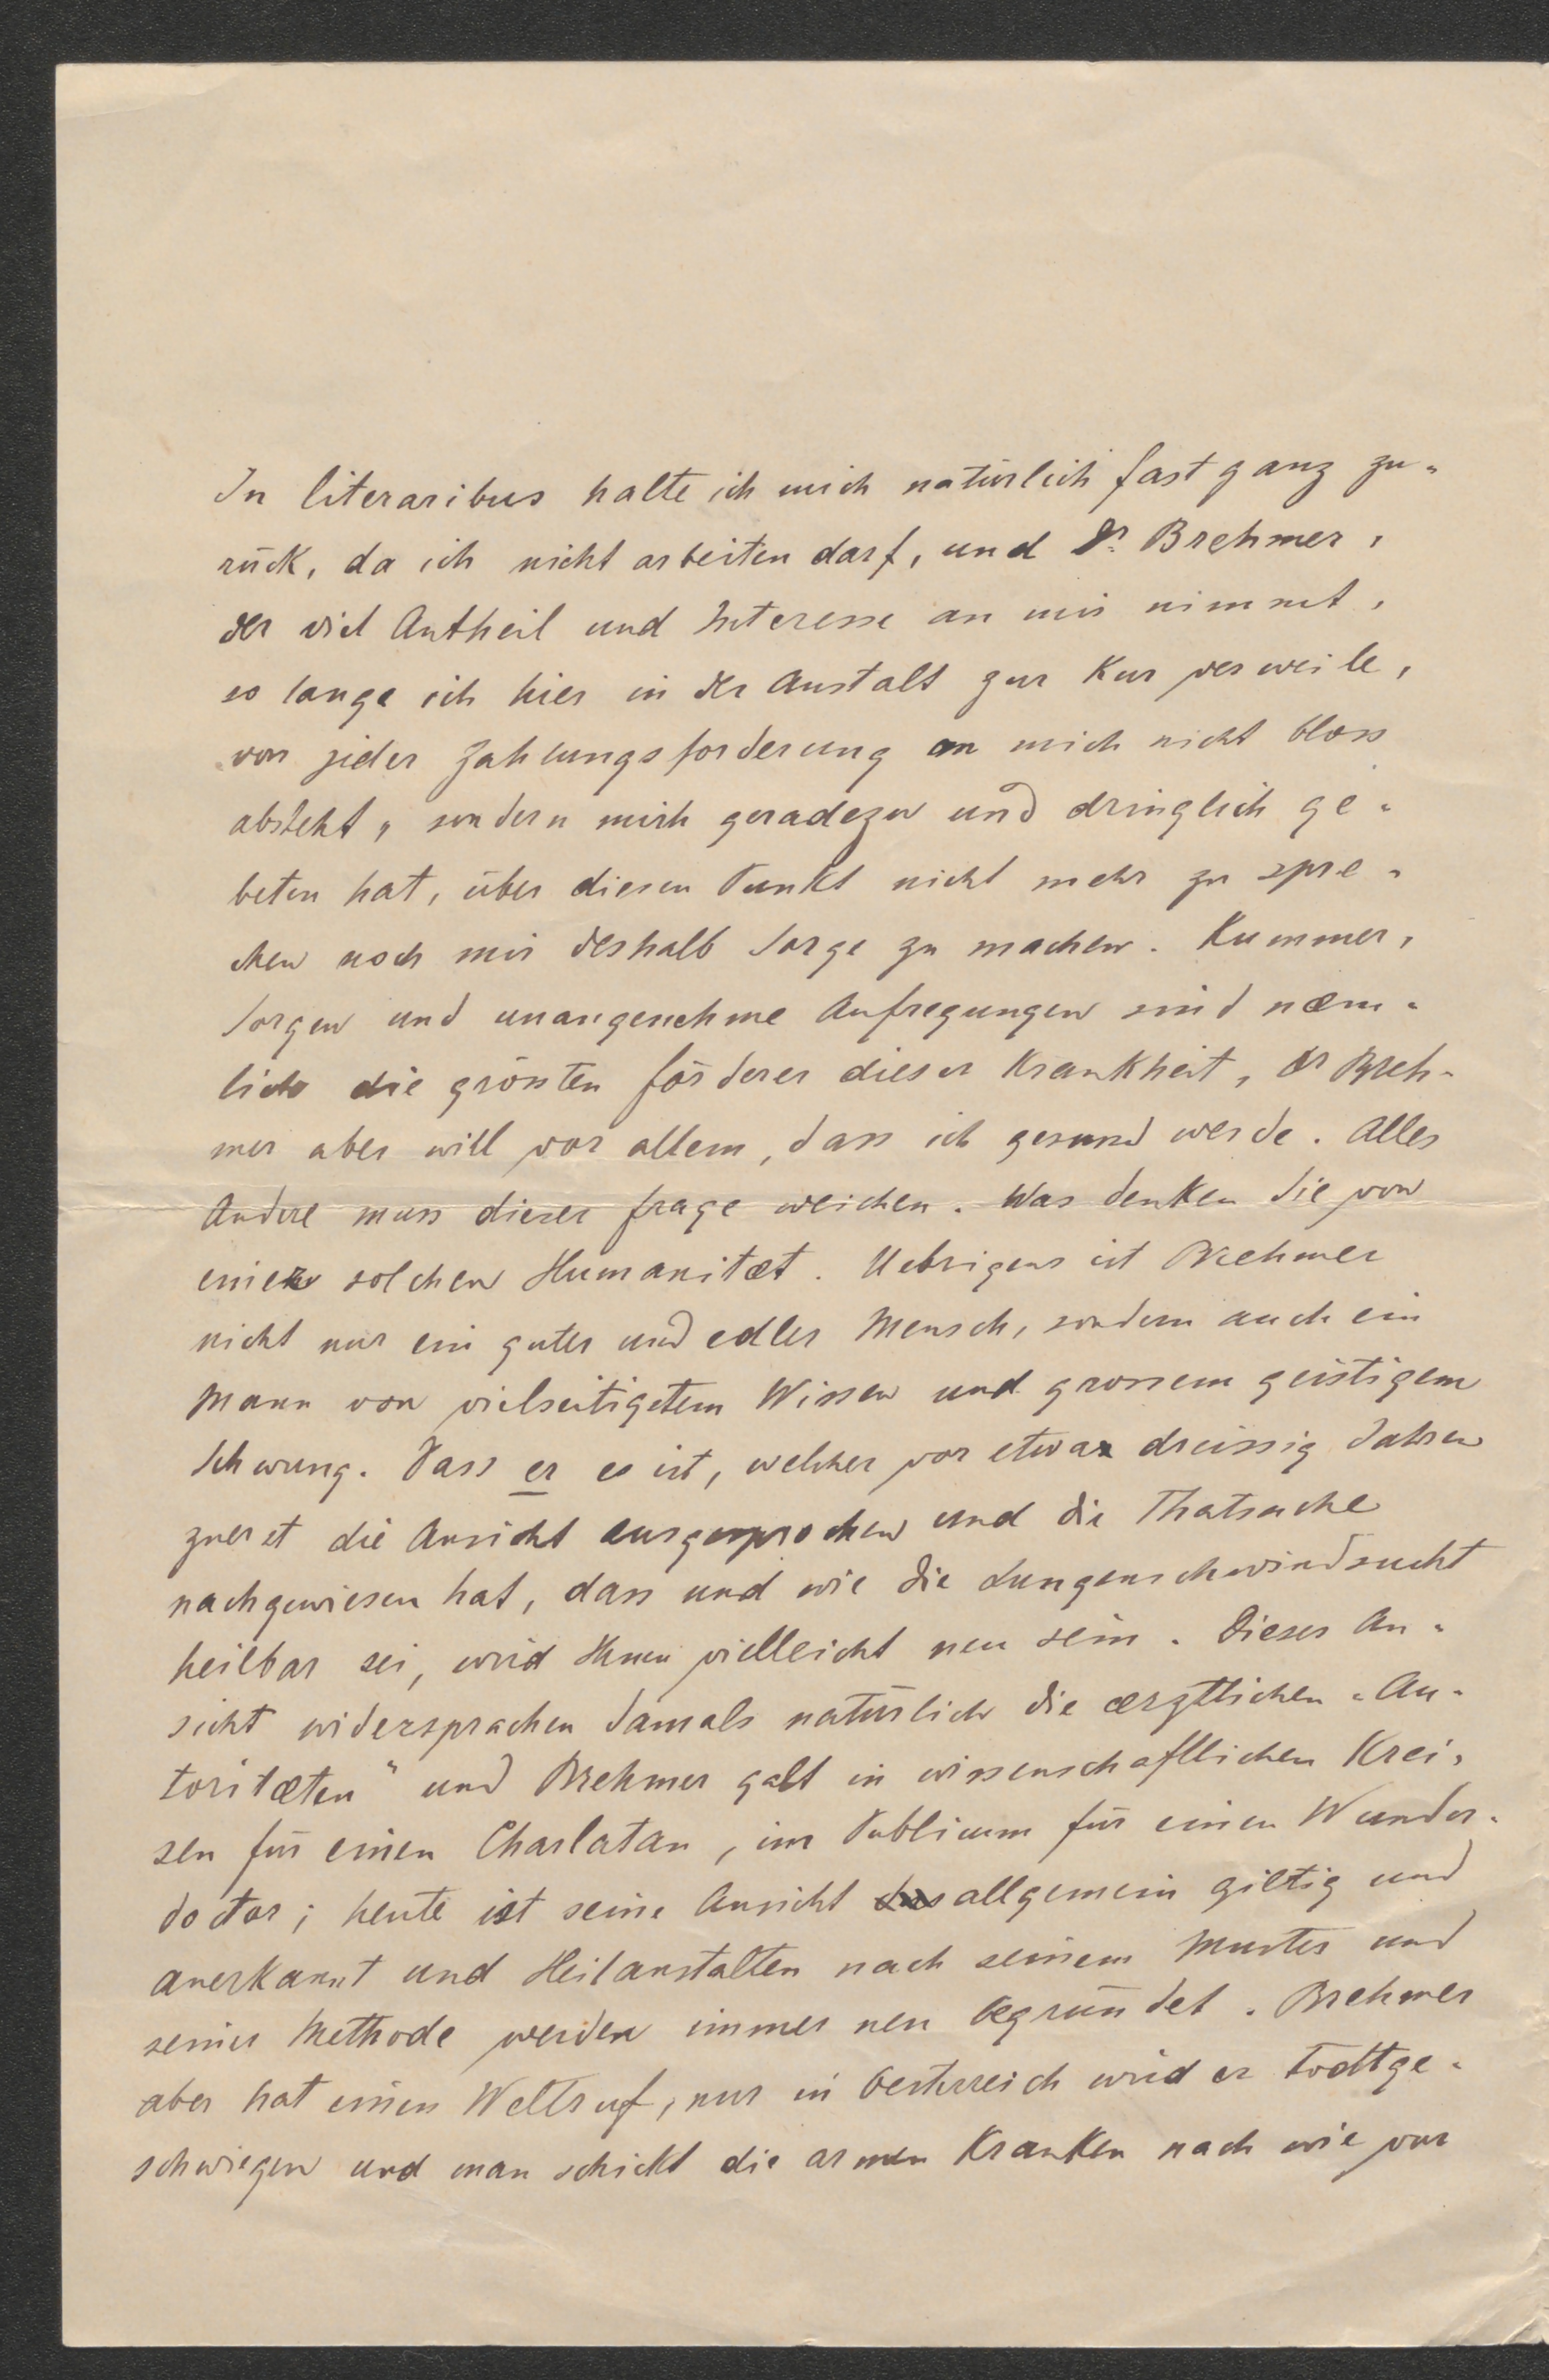 In literaribus halte ich mich natürlich fast ganz zu-
rück, da ich nicht arbeiten darf, und Dr. Brehmer,
der viel Antheil und Interesse an mir nimmt,
so lange ich hier in der Anstalt zur Kur verweile,
von jeder Zahlungsforderung an mich nicht bloss
absteht, sondern mich geradezu und dringlich ge-
beten hat, über diesen Punkt nicht mehr zu spre-
chen noch mir deshalb Sorge zu machen. Kummer,
Sorgen und unangenehme Aufregungen sind næm-
lich die grössten Förderer dieser Krankheit, Dr Breh-
mer aber will vor allem, dass ich gesund werde. Alles
Andere muss dieser Frage weichen. Was denken Sie von
einer solchen Humanitæt. Uebrigens ist Brehmer
nicht nur ein guter und edler Mensch, sondern auch ein
Mann von vielseitigstem Wissen und grossem geistigem
Schwung. Dass er es ist, welcher vor etwa dreissig Jahren
zuerst die Ansicht ausgesprochen und die Thatsache
nachgewiesen hat, dass und wie die Lungenschwindsucht
heilbar sei, wird Ihnen vielleicht neu sein. Dieser An-
sicht widersprachen damals natürlich die ærztlichen „Au-
toritæten" und Brehmer galt in wissenschaftlichen Krei-
sen für einen Charlatan, im Publicum für einen Wunder-
doctor; heute ist seine Ansicht allgemein giltig und
anerkannt und Heilanstalten nach seinem Muster und
seiner Methode werden immer neu begründet. Brehmer
aber hat einen Weltruf, nur in Oesterreich wird er todtge-
schwiegen und man schickt die armen Kranken nach wie vor